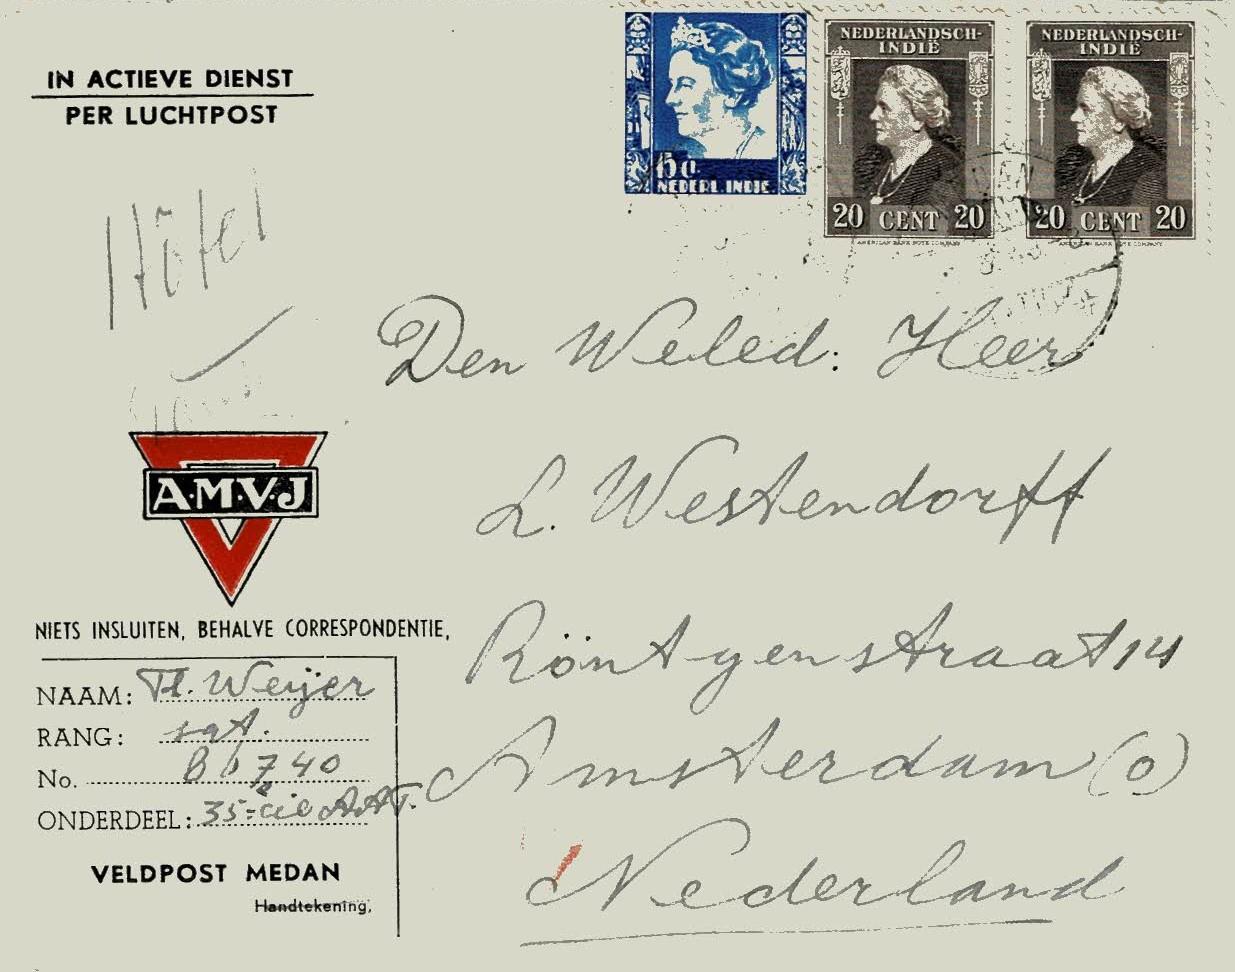 IN ACTIEVE DIENST
PER LUCHTPOST
5 c.
NEDERL. INDIE
NEDERLANDSCH-
INDIË
20 CENT 20
AMERICAN BANK NOTE COMPANY
NEDERLANDSCH-
INDIË
20 CENT 20
AMERICAN BANK NOTE COMPANY
Den Weled: Heer
L. Westendorff
Röntgenstraat 14
Amsterdam (O)
Nederland
A·M·V·J
NIETS INSLUITEN, BEHALVE CORRESPONDENTIE,
NAAM: Th. Weijer
RANG: sgt.
No.
ONDERDEEL: 35e cie A.A.T.
VELDPOST MEDAN
Handtekening,